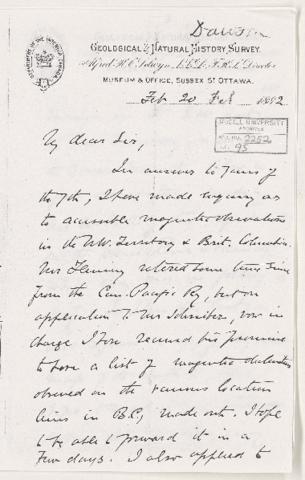 Dawson
GEOLOGICAL & NATURAL HISTORY SURVEY.
Alfred R. C. Selwyn, L.L.D., F.R.S., Director
MUSEUM & OFFICE, SUSSEX ST OTTAWA.
Feb 20 1882
McGILL UNIVERSITY
ARCHIVES
ACC. NO. 2252
95
My dear Sir,
In answer to yours of
the 7th, I have made enquiry as
to accessible magnetic observations
in the N.W. Territory & Brit. Columbia.
Mr Fleming retired some time since
from the Can. Pacific Ry, but on
application to Mr Schreiber, now in
charge I have received his promise
to have a list of magnetic declinations
observed on the various location
lines in B.C., made out. I hope
to be able to forward it in a
few days. I also applied to